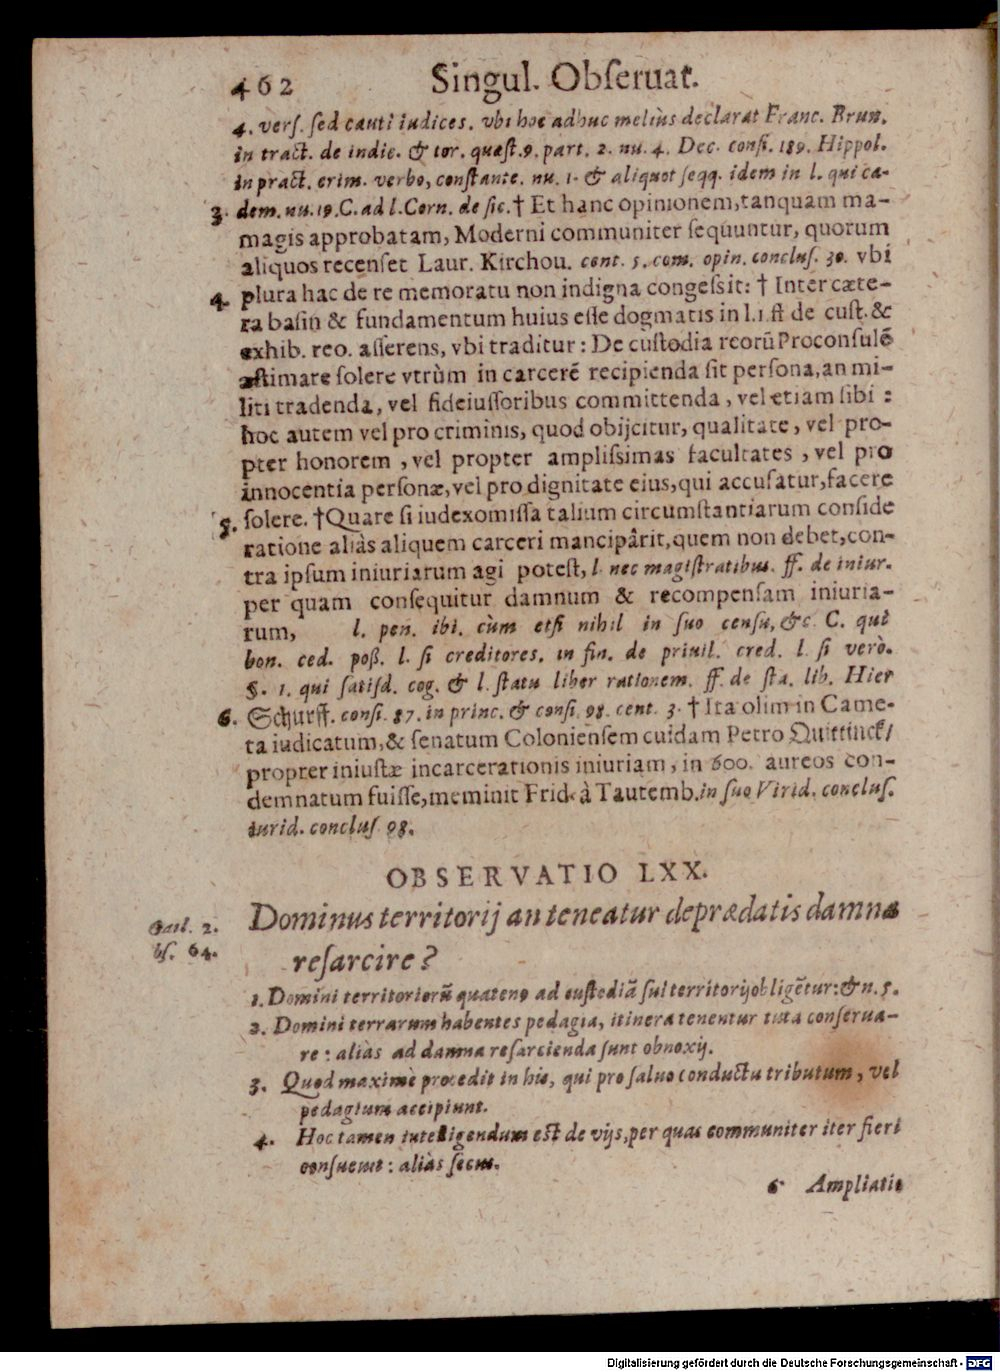 462 Singul. Obſeruat.
4. verſ. ſed cauti iudices. vbi hoc adhuc meliùs declarat Franc. Brun.
in tract. de indic. & tor. quæſt. 9. part. 2. nu. 4. Dec. conſi. 189. Hippol.
in pract. crim. verbo, conſtante. nu. 1. & aliquot ſeqq. idem in l. qui ca-
3. dem. nu. 19. C. ad l. Corn. de ſic. † Et hanc opinionem, tanquam ma-
magis approbatam, Moderni communiter ſequuntur, quorum
aliquos recenſet Laur. Kirchou. cent. 5. com. opin. concluſ. 30. vbi
4. plura hac de re memoratu non indigna congeſsit: † Inter cæte-
ra baſin & fundamentum huius eſſe dogmatis in l. 1. ff de cuſt. &
exhib. reo. aſſerens, vbi traditur: De cuſtodia reorū Proconſulē
æſtimare ſolere vtrùm in carcerē recipienda ſit perſona, an mi-
liti tradenda, vel fideiuſſoribus committenda, vel etiam ſibi:
hoc autem vel pro criminis, quod obijcitur, qualitate, vel pro-
pter honorem, vel propter ampliſsimas facultates, vel pro
innocentia perſonæ, vel pro dignitate eius, qui accuſatur, facere
5. ſolere. †Quare ſi iudex omiſſa talium circumſtantiarum conſide
ratione aliàs aliquem carceri mancipârit, quem non debet, con-
tra ipſum iniuriarum agi poteſt, l. nec magiſtratibus. ff. de iniur.
per quam conſequitur damnum & recompenſam iniuria-
rum, l. pen. ibi. cùm etſi nihil in ſuo cenſu, &c. C. qui
bon. ced. poß. l. ſi creditores. in fin. de priuil. cred. l. ſi verò.
§. 1. qui ſatiſd. cog. & l. ſtatu liber rationem. ff. de ſta. lib. Hier
6. Schurff. conſi. 87. in princ. & conſi. 98. cent. 3. † Ita olim in Came-
ra iudicatum, & ſenatum Colonienſem cuidam Petro Quittinck/
propter iniuſtæ incarcerationis iniuriam, in 600. aureos con-
demnatum fuiſſe, meminit Frid. à Tautemb. in ſuo Virid. concluſ.
iurid. concluſ 98.
OBSERVATIO LXX.
Dominus territorij an teneatur deprædatis damna
reſarcire?
Gail. 2.
bſ. 64.
1. Domini territoriorū quateno ad cuſtodiā ſui territorij obligētur: & n. 5.
2. Domini terrarum habentes pedagia, itinera tenentur tuta conſerua-
re: aliàs ad damna reſarcienda ſunt obnoxij.
3. Quod maximè procedit in his, qui pro ſaluo conductu tributum, vel
pedagium accipiunt.
4. Hoc tamen intelligendum eſt de vijs, per quas communiter iter fieri
conſueuit: aliàs ſecus.
6 Ampliatis
Digitalisierung gefördert durch die Deutsche Forschungsgemeinschaft - DFG